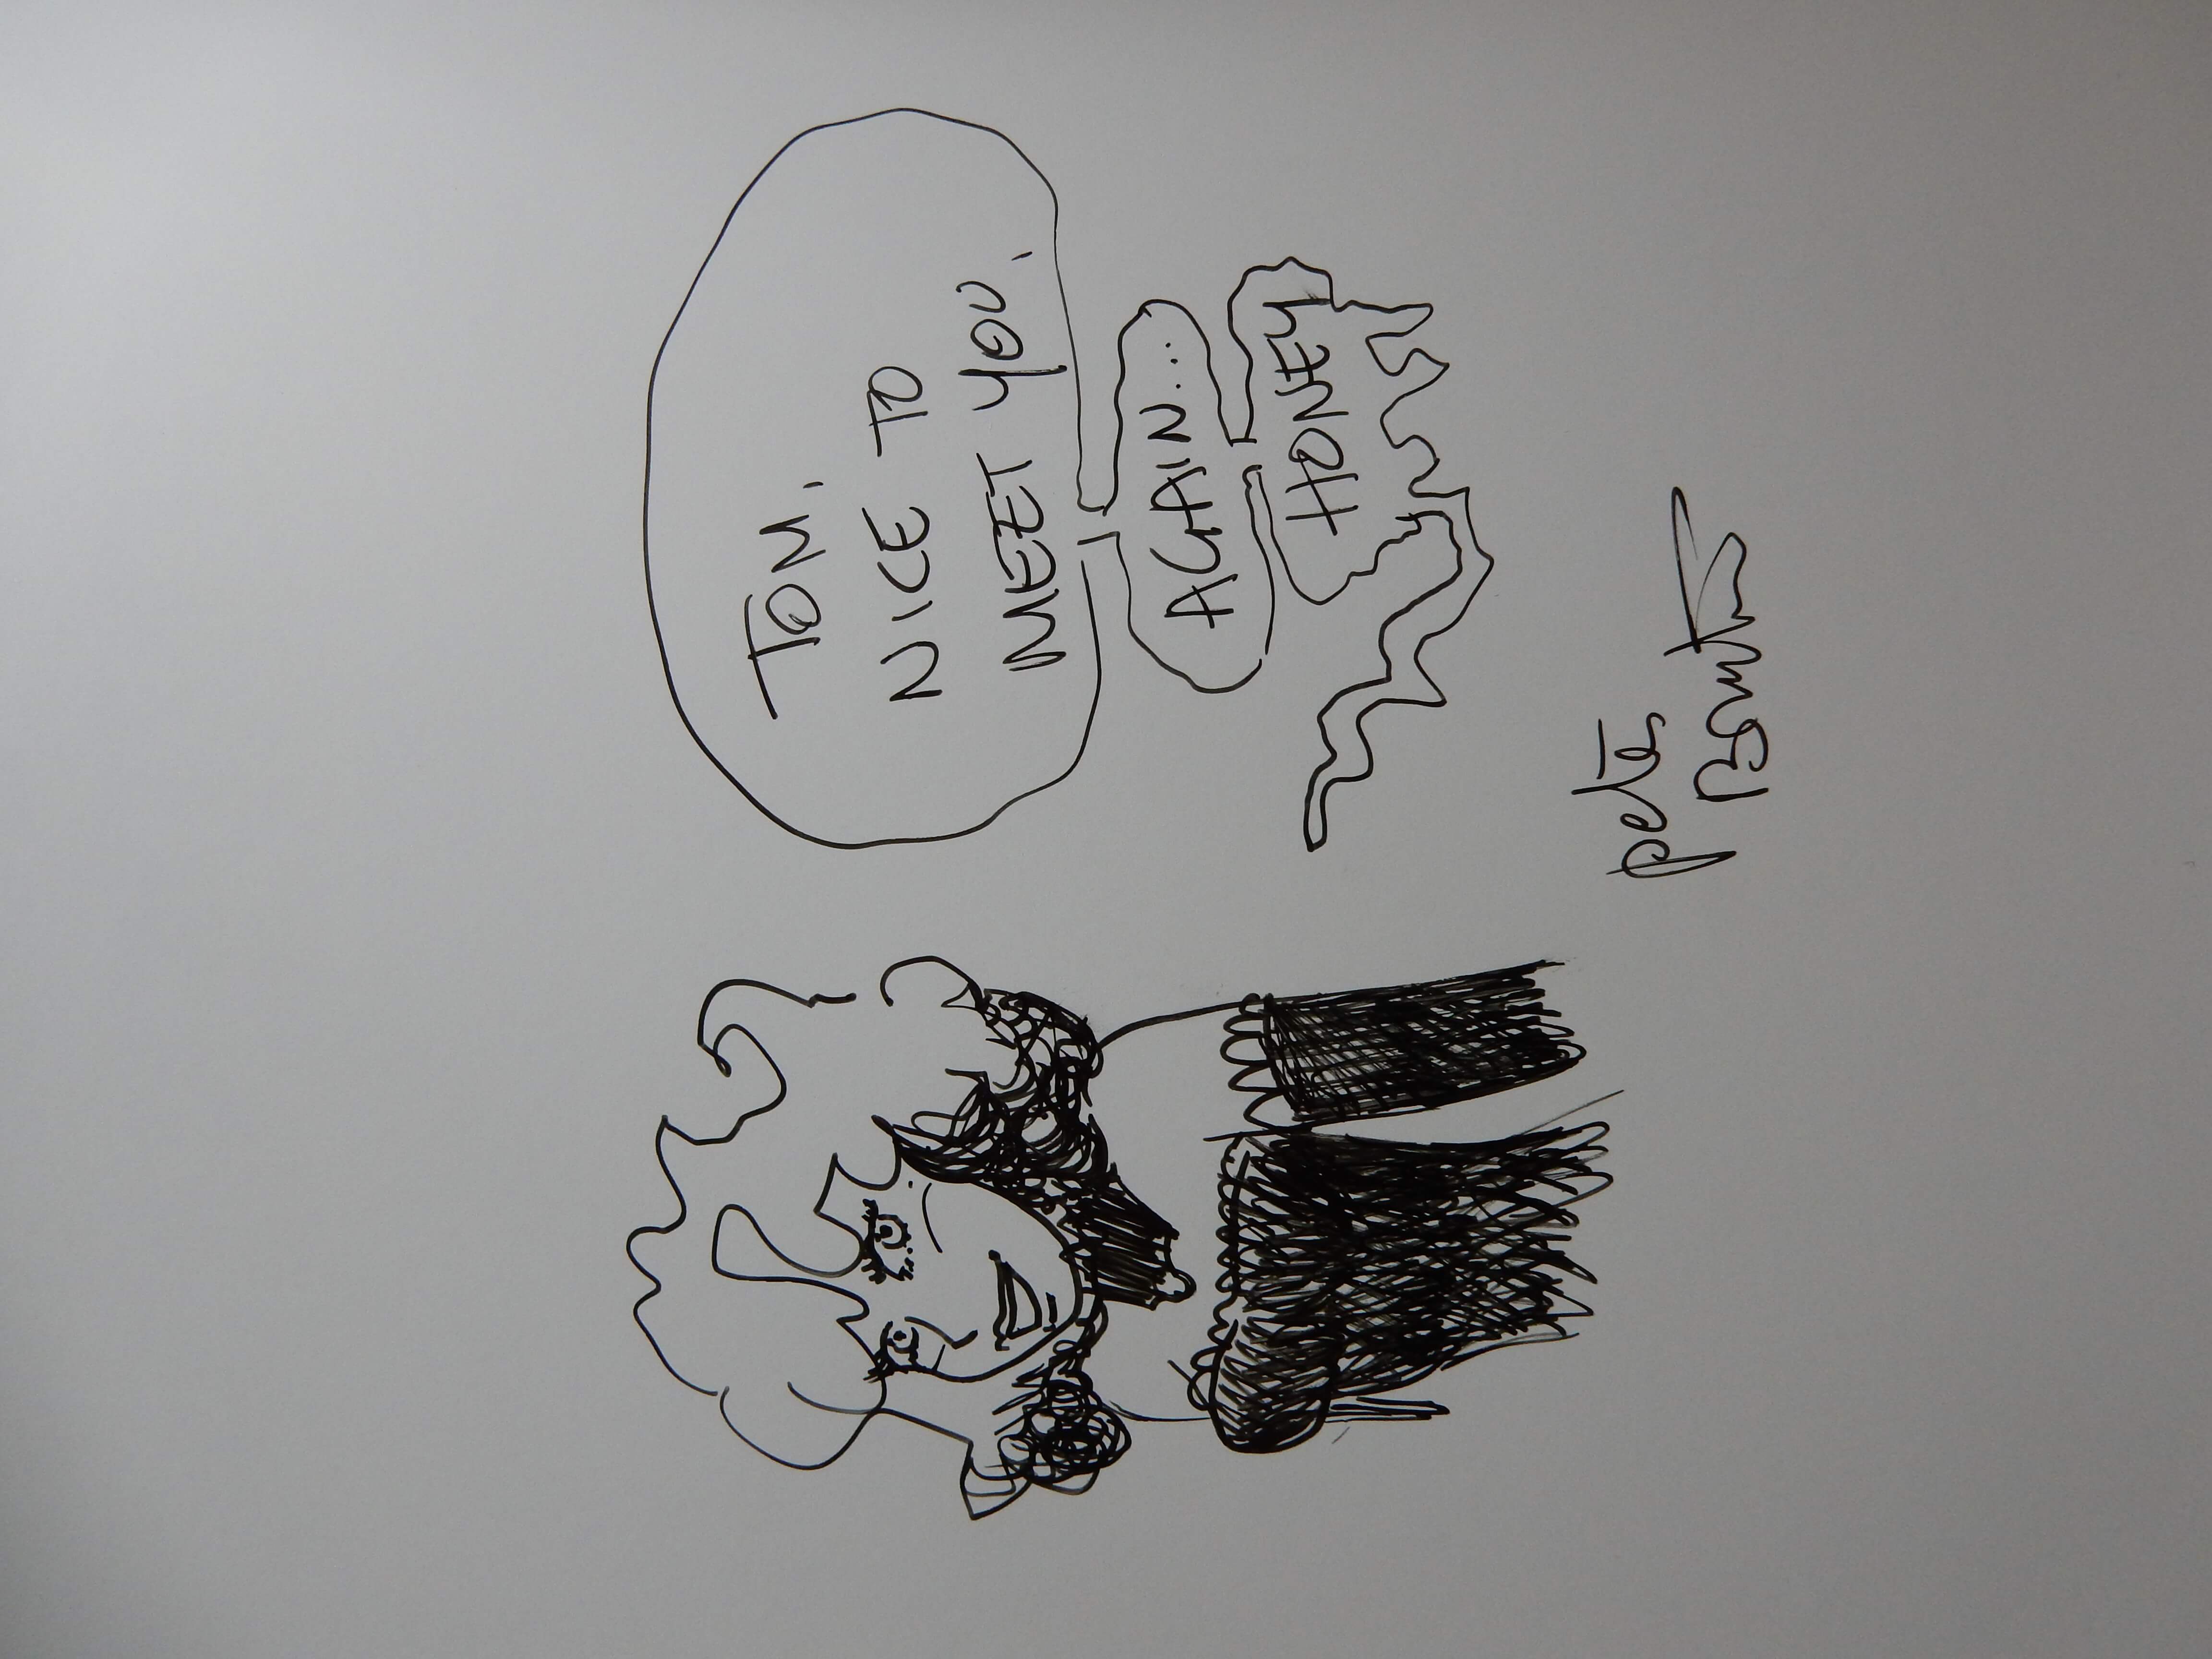 TOM,
NICE TO
MEET YOU,
AGAIN...
HONEY
pete